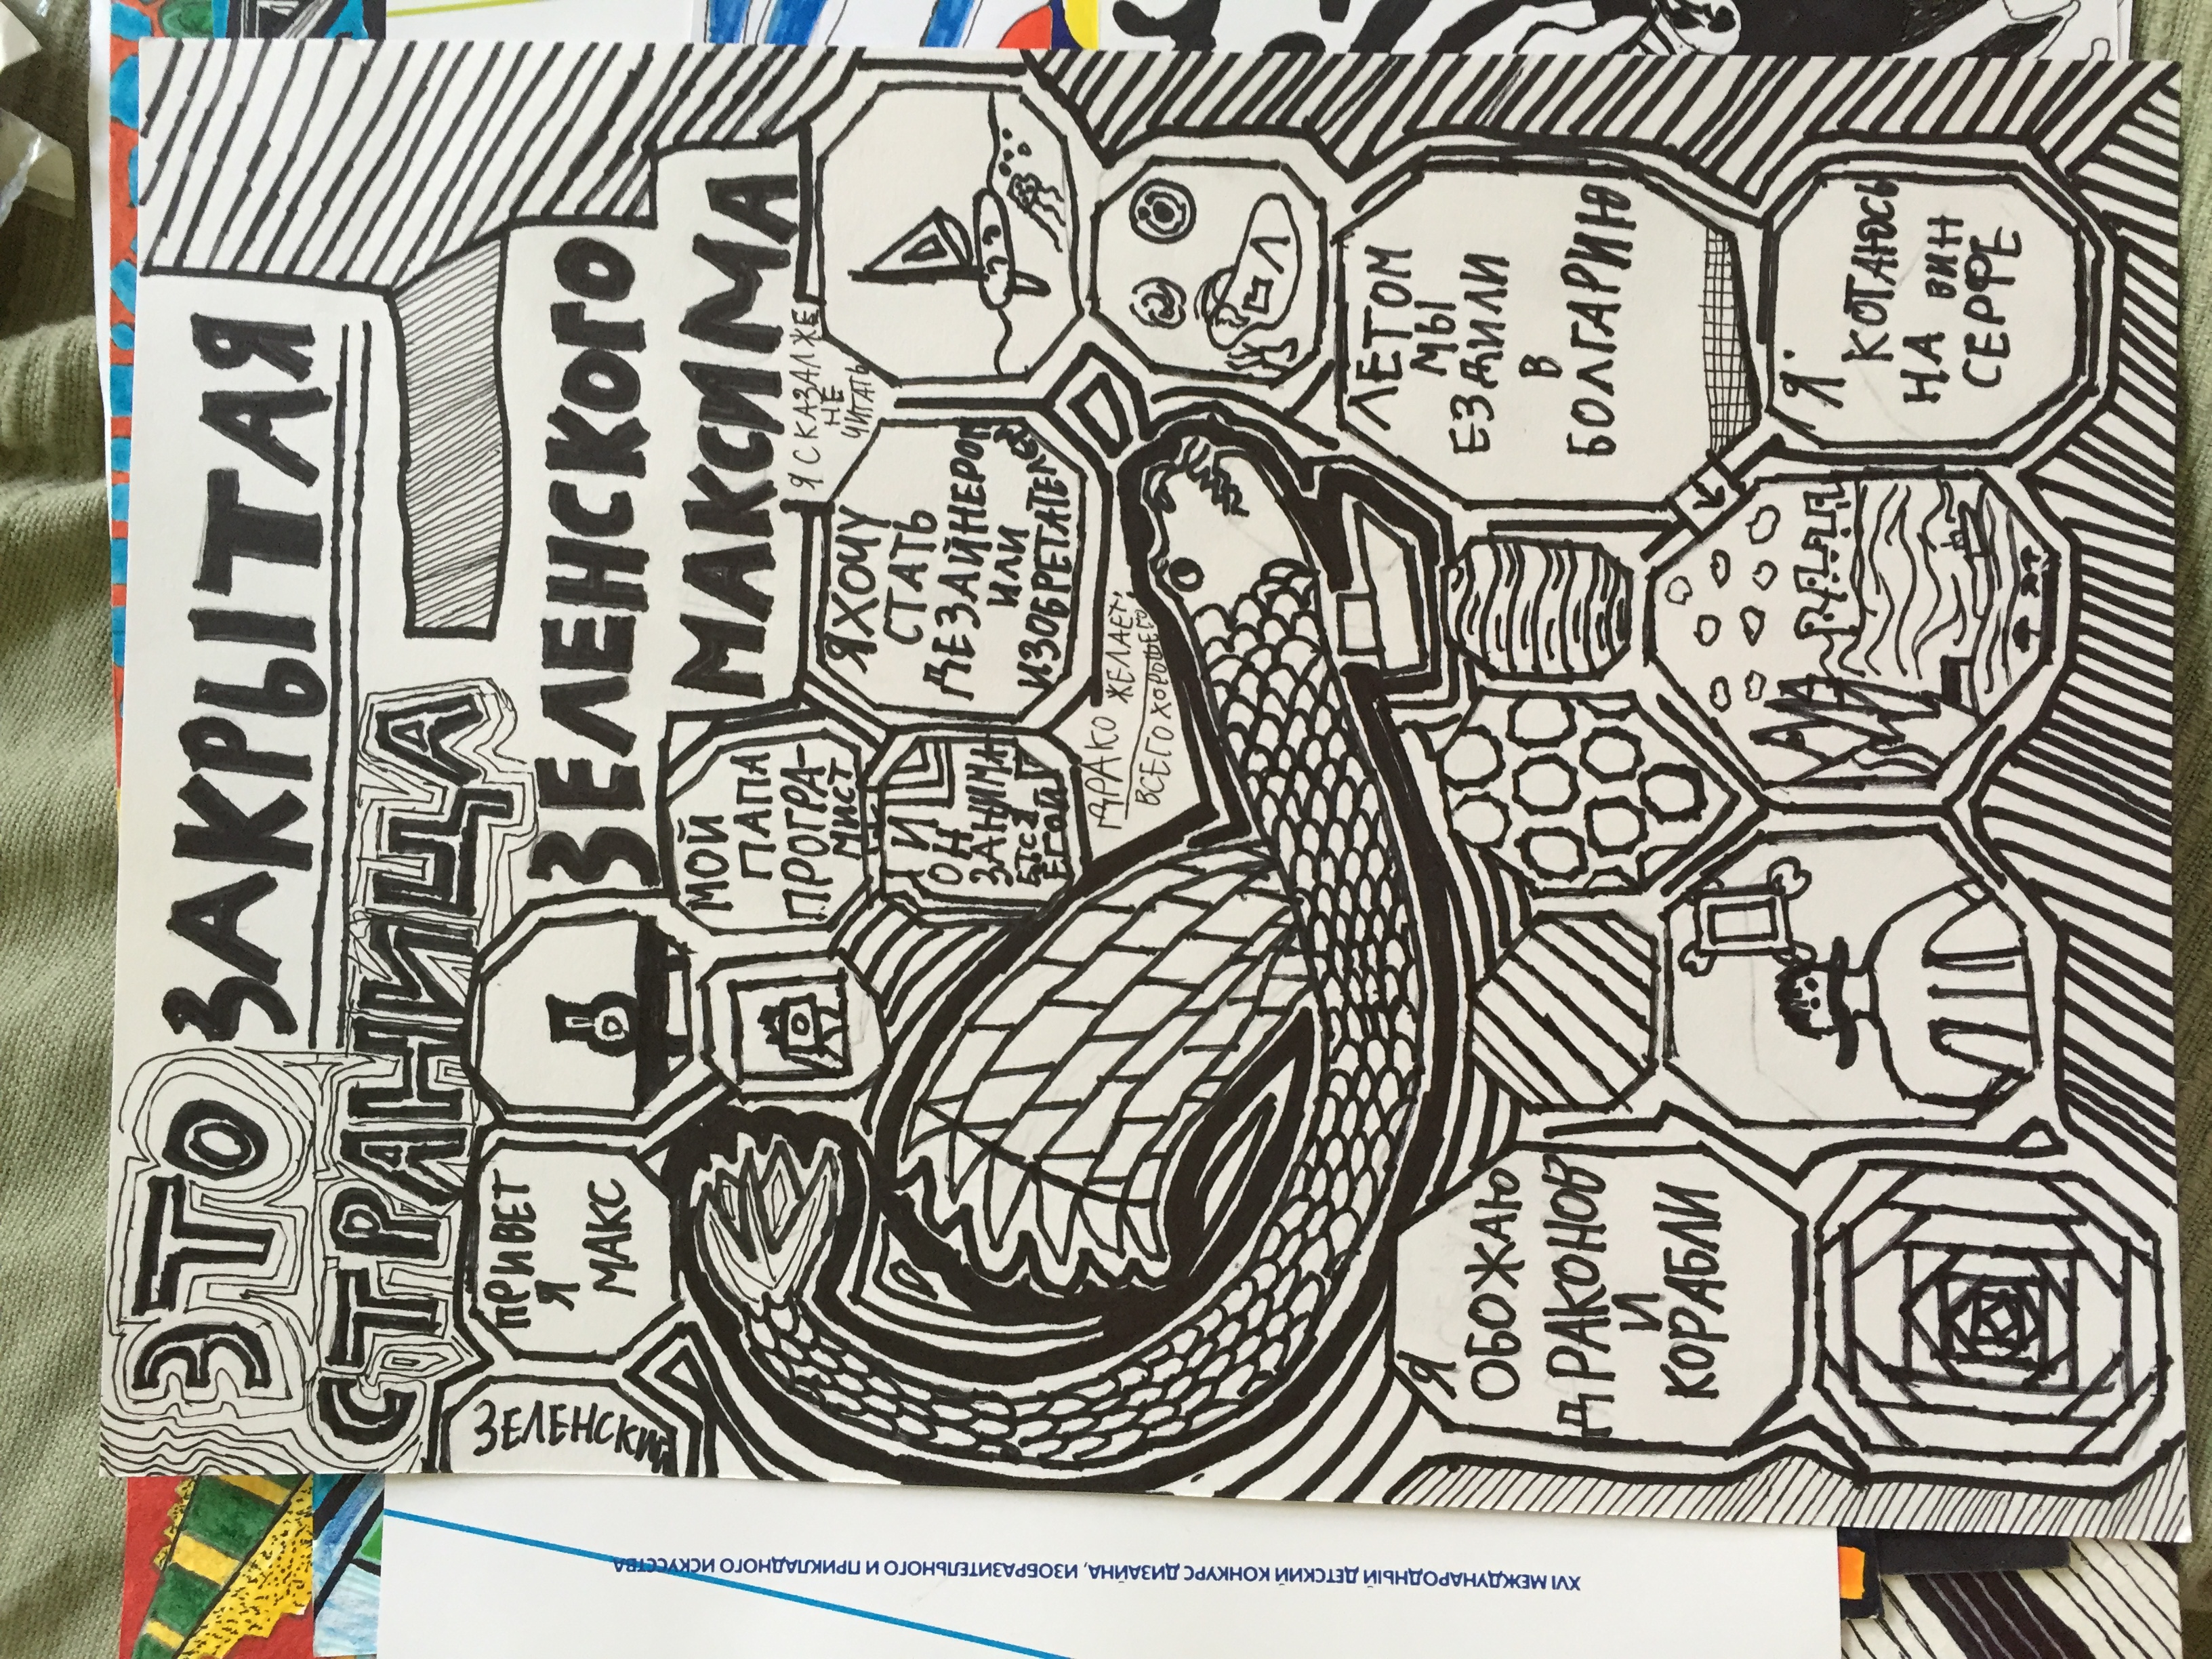 XVI МЕЖДУНАРОДНЫЙ ДЕТСКИЙ КОНКУРС ДИЗАЙНА, ИЗОБРАЗИТЕЛЬНОГО И ПРИКЛАДНОГО ИСКУССТВА
ЭТО
ЗАКРЫТАЯ
СТРАНИЦА
ЗЕЛЕНСКОГО
МАКСИМА
ЗЕЛЕНСКИЙ
ПРИВЕТ
Я
МАКС
МОЙ
ПАПА
ПРОГРА-
МИСТ
И
ОН
ЗАНИМА
ЕТСЯ
ЕГОЙ
Я СКАЗАЛ ЖЕ
НЕ
ЧИТАТЬ
Я ХОЧУ
СТАТЬ
ДЕЗАЙНЕРОМ
ИЛИ
ИЗОБРЕТАТЕЛЕМ
ДРАКО ЖЕЛАЕТ
ВСЕГО ХОРОШЕГО
Я
ОБОЖАЮ
ДРАКОНОВ
И
КОРАБЛИ
ЛЕТОМ
МЫ
ЕЗДИЛИ
В
БОЛГАРИЮ
Я
КОТАЮСЬ
НА ВИН
СЕРФЕ